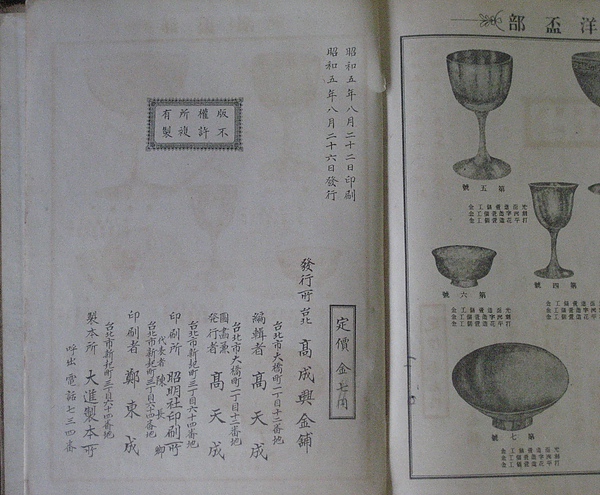 昭和五年八月二十二日印刷
昭和五年八月二十六日發行
版權所有
不許複製
定價 金七円
發行所 台北 高成興金舖
台北市大橋町一丁目十二番地
編輯者 高天成
台北市大橋町一丁目十二番地
圖畫兼
發行者 高天成
台北市新起町三丁目六十四番地
印刷所 昭明社印刷所
代表者 陳長卿
台北市新起町三丁目六十四番地
印刷者 鄭東成
台北市新起町三丁目六十四番地
製本所 大進製本所
呼出電話七三四番
洋盃部
第五號
第四號
第六號
第七號